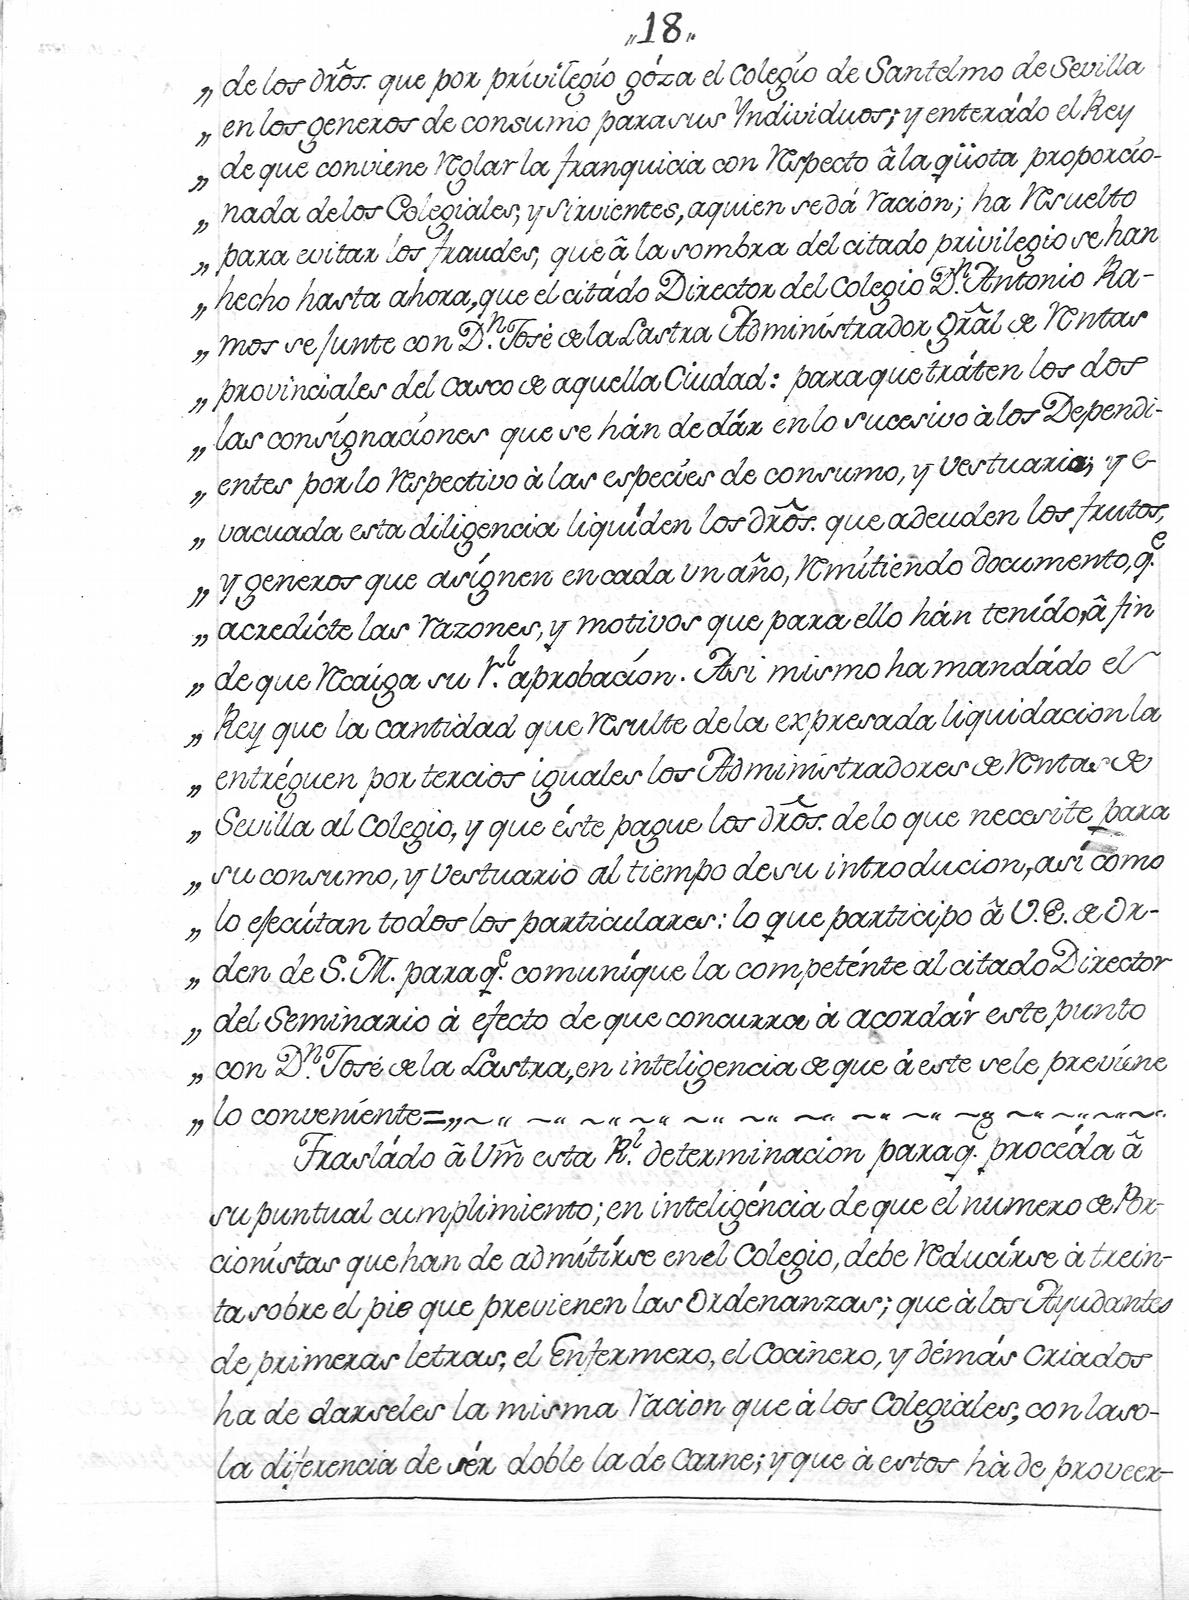 „18„
„ de los drõs. que por privilegio góza el Colegio de Santelmo de Sevilla
„ en los generos de consumo para sus Yndividuos; y enterádo el Rey
„ de que conviene reglar la franquicia con respecto â la qüota proporcio-
„ nada de los Colegiales, y sirvientes, a quien se dá racion; ha resuelto
„ para evitar los fraudes, que â la sombra del citado privilegio se han
„ hecho hasta ahora, que el citádo Director del Colegio Dn. Antonio Ra-
„ mos se junte con Dn. José de la Lastra Administrador grãl de rentas
„ provinciales del casco de aquella Ciudad: para que tráten los dos
„ las consignaciónes que se hán de dár en lo sucesivo à los Dependi-
„ entes por lo respectivo à las especies de consumo, y vestuario; y e-
„ vacuada esta diligencia liquiden los drõs. que adeuden los frutos,
„ y generos que asígnen en cada un año, remitiendo documento, qe.
„ acredicte las razones, y motivos que para ello hán tenído, â fin
„ de que recaiga su rl. aprobación. Asi mismo ha mandádo el
„ Rey que la cantidad que resulte de la expresada liquidacion la
„ entréguen por tercios iguales los Administradores de rentas de
„ Sevilla al Colegio, y que éste pague los drõs. de lo que necesite para
„ su consumo, y vestuario al tiempo de su introducion, así como
„ lo ejecútan todos los particulares: lo que participo â V.E. de Or-
„ den de S. M. para qe. comuníque la competénte al citado Director
„ del Seminario à efecto de que concurra à acordár este punto
„ con Dn. José de la Lastra, en inteligencia de que á este se le previéne
„ lo conveniente=„
Trasládo â Vm̃ esta Rl. determinacion para qe. procéda â
su puntual cumplimiento; en inteligéncia de que el numero de Por-
cionístas que han de admitírse en el Colegio, debe reducírse à trein-
ta sobre el pie que previenen las Ordenanzas; que à los Ayudantes
de primeras letras, el Enfermero, el Cocinero, y démás Criados
ha de darseles la misma racion que à los Colegiales, con la so-
la diferencia de sér doble la de Carne; y que à estos hà de proveer-